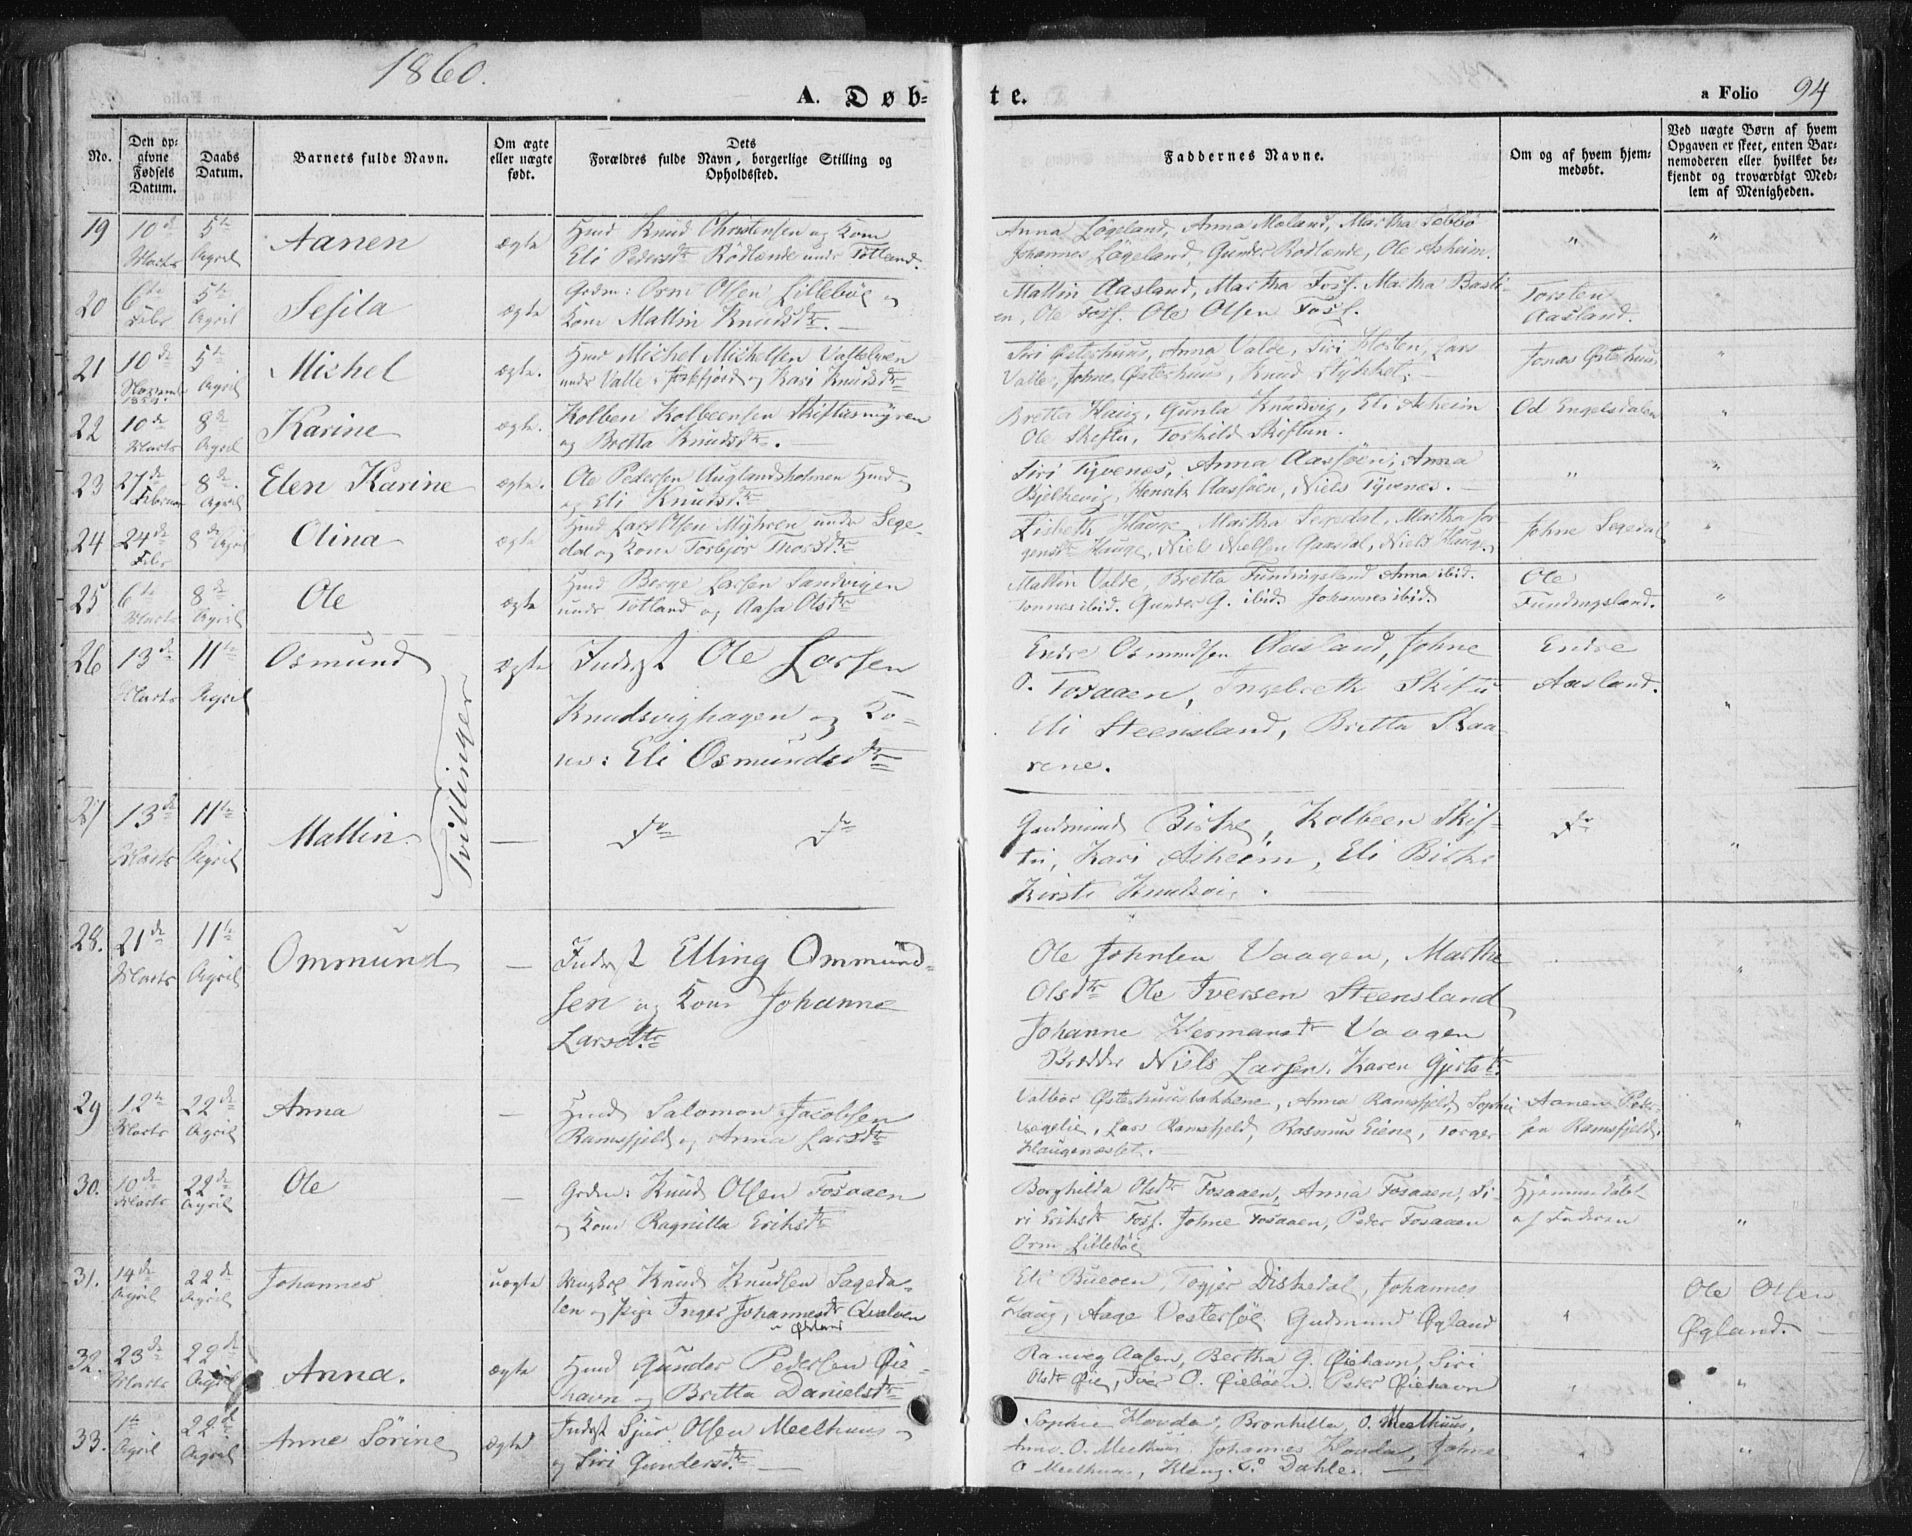 1860.
A. Døb-
te.
a Folio 94
No.
Den op-
givne
Fødsels
Datum.
Daabs
Datum.
Barnets fulde Navn.
Om ægte
eller uægte
født.
Dets
Forældres fulde Navn, borgerlige Stilling og
Opholdssted.
Faddernes Navne.
Om og af hvem hjem-
medøbt.
Ved uægte Børn af hvem
Opgaven er skeet, enten Bar-
nemoderen eller hvilket be-
kjendt og troværdigt Med-
lem af Menigheden.
19 10de Marts 5te April Aanen ægte Hmd Knud Christensen og Kone
Eli Pedersdtr Rödlende under Totland.
Anna Lögeland, Anna Moland, Martha Tebbö
Johannes Lögeland, Gunder Rodlende, Ole Asheim.
20 6te Febr 5te April Sesila ægte Grdm: Orm Olsen Lilleböe og
Kone Mallin Knudsdtr. —
Mallin Aasland, Martha Foss. Martha Basti-
en, Ole Foss. Ole Olsen Foss.
Torsten
Aasland.
21 10de November 1859. 5te April Michel ægte. Hmd Michel Michelsen Vallelven
under Valle i Joskfjord og Kari Knudsdtr
Siri Østerhuus, Anna Valde, Siri Horten, Lars
Valle, Johne Østerhuus, Knud Stykket.
Jonas Østerhuus
22 10de Marts 8de April Karine ægte. Kolben Kolbeensen Skiftusmyren
og Bretta Knudsdtr.
Bretta Haug, Gunla Knudsvig, Eli Asheim
Ole Skiftu, Torkild Skiftun.
Od Engelsdalen
23 27de Februar 8de April Elen Karine ægte. Ole Pedersen Auglandsholmen Hmd
og Eli Knudsdtr.
Siri Tyvenæs, Anna Aasföen, Anna
Bjelkevig, Henrik Aasföen, Niels Tyvenes. —
24 24de Febr 8de April Olina ægte Hmd Lars Olsen Myhren under Sege-
dal og Kone Torbjør Thorsdtr
Lisbeth Hauge, Martha Segedal, Martha Jor
gensdtr Hauge, Niels Nielsen Gaasdal, Niels Hauge.
Johne Segedal
25 6te Marts 8de April Ole ægte Hmd Berge Larsen Sandvigen
under Totland og Aasa Olsdtr
Mallin Valde, Bretta Fundingsland Anna ibid.
Tonnes ibid. Gunder G. ibid. Johannes ibid.
Ole
Fundingsland.
26 13de Marts 11te April Osmund ægte Inderst Ole Larsen
Knudsvighagen og Ko-
ne: Eli Osmundsdtr
Endre Osmundsen Aasland, Johne
O. Tosaaen, Ingebreth Skiftu
Eli Steensland, Britta Skaa-
rene.
Endre
Aasland.
Tvillinger
27 13de Marts 11te April Mallin. — do do
Gudmund Birke, Kolbeen Skif-
tu, Kari Asheim, Eli Birke
Kirsti Knudsvig. —
do
28. 21de Marts 11te April Ommund — Inderst Elling Ommund-
sen og Kone Johanne
Larsdtr
Ole Johnsen Vaagen, Marthe
Olsdtr Ole Iversen Steensland
Johanne Hermansdtr Vaagen
Niels Larsen, Karen Gjertsdtr.
29 12te Marts 22de April Anna — Hmd Salomon Jacobsen
Ramsfjeld og Anna Larsdtr
Valbor Østerhuusbakkene, Anna Ramsfjeld, Sophie
Lars Ramsfjeld, Rasmus Eiene, Torger
Haugenæstet. —
Aanen Peder-
sen Ramsfjeld.
30. 10de Marts 22de April Ole — Grdm: Knud Olsen Tosaaen
og Kone Ragnilla Eriksdtr
Borghilda Olsdtr Tosaaen, Anna Tosaaen, Si-
ri Eriksdtr Foss. Johne Tosaaen, Peder Tosaaen
Orm Lilleböe
Hjemmedöbt
af Faderen
31. 14de April 22de April Johannes uægte Ungkarl Knud Knudsen Sageda-
len og Pige Inger Johannesdtr Qvalven
Øgland
Eli Bueoen, Togjer Diskedal, Johannes
Haug, Aage Vestersöe. Gudmund Øgland
Ole Olsen
Øgland.
32. 23de Marts 22de April Anna. ægte Hmd Gunder Pedersen Øie-
havn og Britta Danielsdtr
Ranveg Aasen, Bertha G. Øiehavn, Siri
Olsdtr Øie, Iver O. Øieböen. Peder Øiehavn
33. 1te April 22de April Anne Sörine ægte Inderst Sjur Olsen Meelhuus
og Siri Gundersdtr. —
Sophie Hovda, Bronhilla O. Meelhuus,
Anne O. Meelhuus. Johannes Hovda, Johne
O Meelhuus, Dahle. —